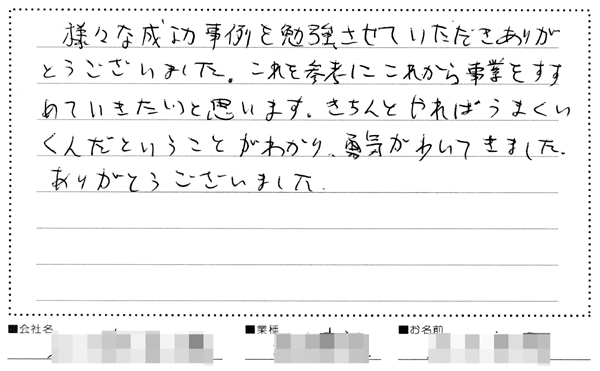 様々な成功事例を勉強させていただきありが
とうございました。これを参考にこれから事業をすす
めていきたいと思います。きちんとやればうまくい
くんだということがわかり、勇気がわいてきました.
ありがとうございました.
■会社名 ■業種 ■お名前